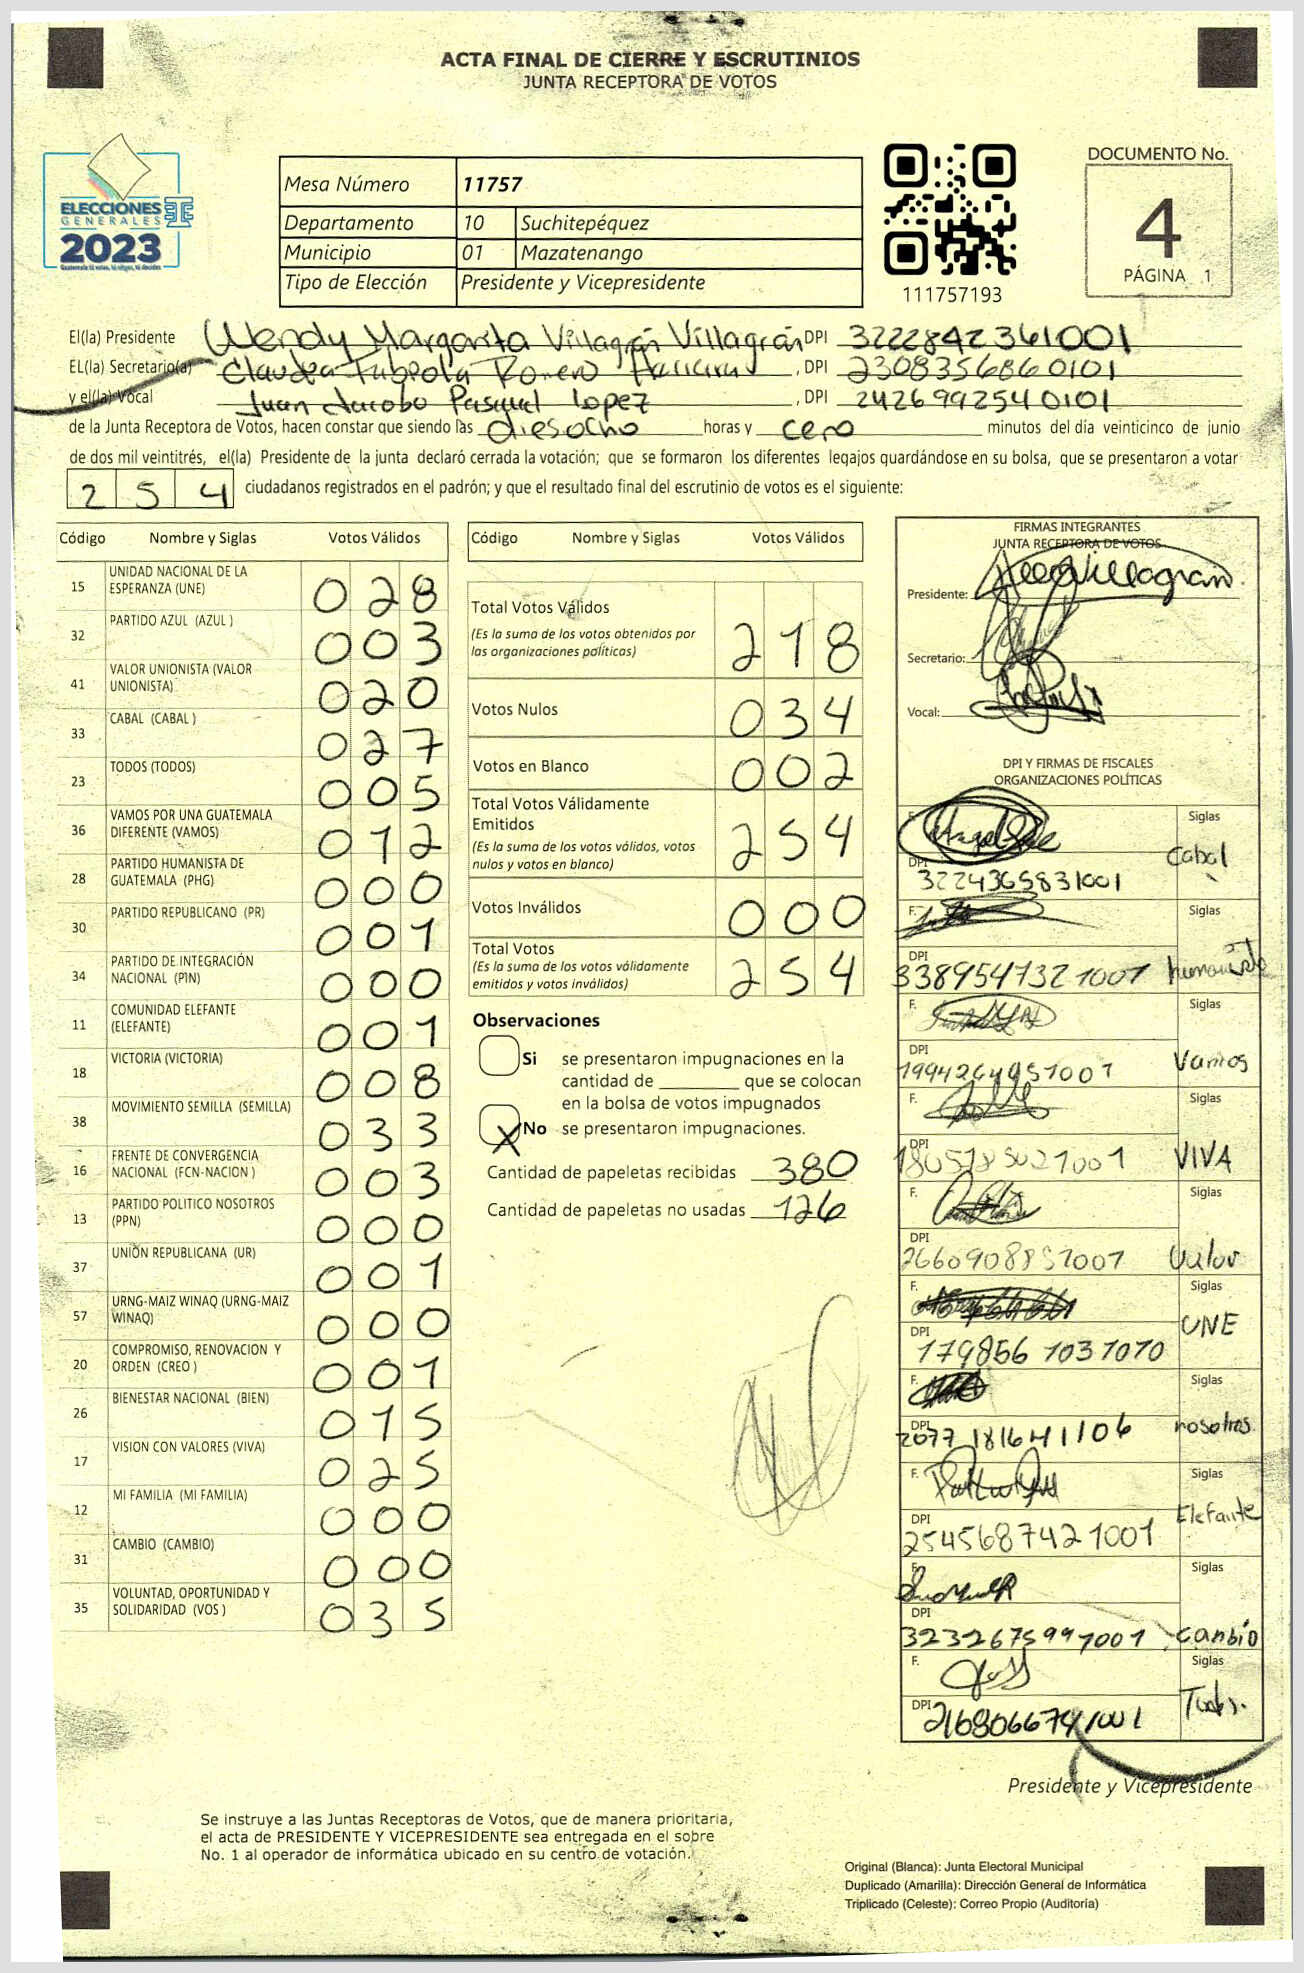 ACTA FINAL DE CIERRE Y ESCRUTINIOS
JUNTA RECEPTORA DE VOTOS
ELECCIONES
GENERALES
2023
Guatemala tú votas, tú eliges, tú decides
TSE
Mesa Número 11757
Departamento 10 Suchitepéquez
Municipio 01 Mazatenango
Tipo de Elección Presidente y Vicepresidente
111757193
DOCUMENTO No.
4
PÁGINA 1
El(la) Presidente Wendy Margarita Villagrán Villagrán DPI 3222842361001
EL(la) Secretario(a) Claudia Fabiola Romero , DPI 2308356860101
y el(la) Vocal Juan Jacobo Pasqual Lopez , DPI 2426992540101
de la Junta Receptora de Votos, hacen constar que siendo las diesocho horas y cero minutos del día veinticinco de junio
de dos mil veintitrés, el(la) Presidente de la junta declaró cerrada la votación; que se formaron los diferentes legajos guardándose en su bolsa, que se presentaron a votar
254 ciudadanos registrados en el padrón; y que el resultado final del escrutinio de votos es el siguiente:
Código Nombre y Siglas Votos Válidos
15 UNIDAD NACIONAL DE LA
ESPERANZA (UNE) 028
32 PARTIDO AZUL (AZUL ) 003
41 VALOR UNIONISTA (VALOR
UNIONISTA) 020
33 CABAL (CABAL ) 027
23 TODOS (TODOS) 005
36 VAMOS POR UNA GUATEMALA
DIFERENTE (VAMOS) 012
28 PARTIDO HUMANISTA DE
GUATEMALA (PHG) 000
30 PARTIDO REPUBLICANO (PR) 001
34 PARTIDO DE INTEGRACIÓN
NACIONAL (PIN) 000
11 COMUNIDAD ELEFANTE
(ELEFANTE) 001
18 VICTORIA (VICTORIA) 008
38 MOVIMIENTO SEMILLA (SEMILLA) 033
16 FRENTE DE CONVERGENCIA
NACIONAL (FCN-NACION ) 003
13 PARTIDO POLITICO NOSOTROS
(PPN) 000
37 UNIÓN REPUBLICANA (UR) 001
57 URNG-MAIZ WINAQ (URNG-MAIZ
WINAQ) 000
20 COMPROMISO, RENOVACION Y
ORDEN (CREO ) 001
26 BIENESTAR NACIONAL (BIEN) 015
17 VISION CON VALORES (VIVA) 025
12 MI FAMILIA (MI FAMILIA) 000
31 CAMBIO (CAMBIO) 000
35 VOLUNTAD, OPORTUNIDAD Y
SOLIDARIDAD (VOS ) 035
Código Nombre y Siglas Votos Válidos
Total Votos Válidos 218
(Es la suma de los votos obtenidos por
las organizaciones políticas)
Votos Nulos 034
Votos en Blanco 002
Total Votos Válidamente
Emitidos 254
(Es la suma de los votos válidos, votos
nulos y votos en blanco)
Votos Inválidos 000
Total Votos 254
(Es la suma de los votos válidamente
emitidos y votos inválidos)
Observaciones
Si se presentaron impugnaciones en la
cantidad de ________ que se colocan
en la bolsa de votos impugnados
X No se presentaron impugnaciones.
Cantidad de papeletas recibidas 380
Cantidad de papeletas no usadas 126
FIRMAS INTEGRANTES
JUNTA RECEPTORA DE VOTOS
Presidente: Villagran
Secretario:
Vocal:
DPI Y FIRMAS DE FISCALES
ORGANIZACIONES POLÍTICAS
F. Siglas
DPI Cabal
3224365831001
F. Siglas
DPI
3389547321001 humanista
F. Siglas
DPI Vamos
F. Siglas
DPI VIVA
F. Siglas
DPI
2660908851001 Valor
F. Siglas
DPI UNE
1798561031010
F. Siglas
DPI nosotros
2077181641106
F. Siglas
DPI Elefante
2545687421001
F. Siglas
DPI
3232675991001 cambio
F. Siglas
DPI 2168066741001 Todos.
Presidente y Vicepresidente
Se instruye a las Juntas Receptoras de Votos, que de manera prioritaria,
el acta de PRESIDENTE Y VICEPRESIDENTE sea entregada en el sobre
No. 1 al operador de informática ubicado en su centro de votación.
Original (Blanca): Junta Electoral Municipal
Duplicado (Amarilla): Dirección General de Informática
Triplicado (Celeste): Correo Propio (Auditoría)